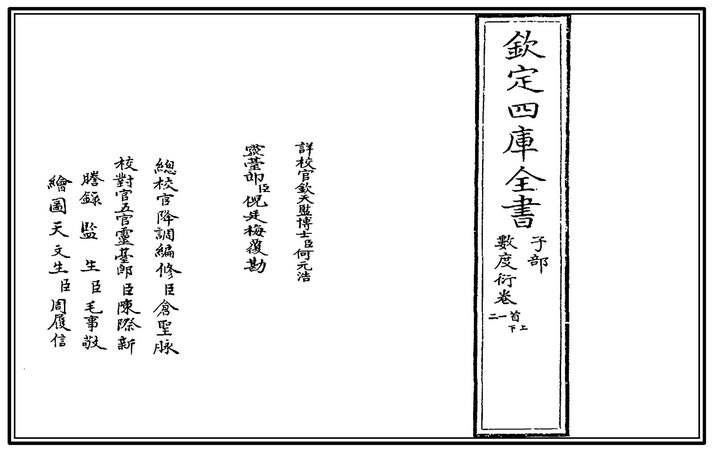 欽定四庫全書
子部
數度衍卷首上下一二
詳校官欽天監博士臣何元浩
靈臺郎臣倪廷梅覆勘
總校官降調編修臣倉聖脉
校對官五官靈臺郎臣陳際新
謄錄監生臣毛事敬
繪圖天文生臣周履信